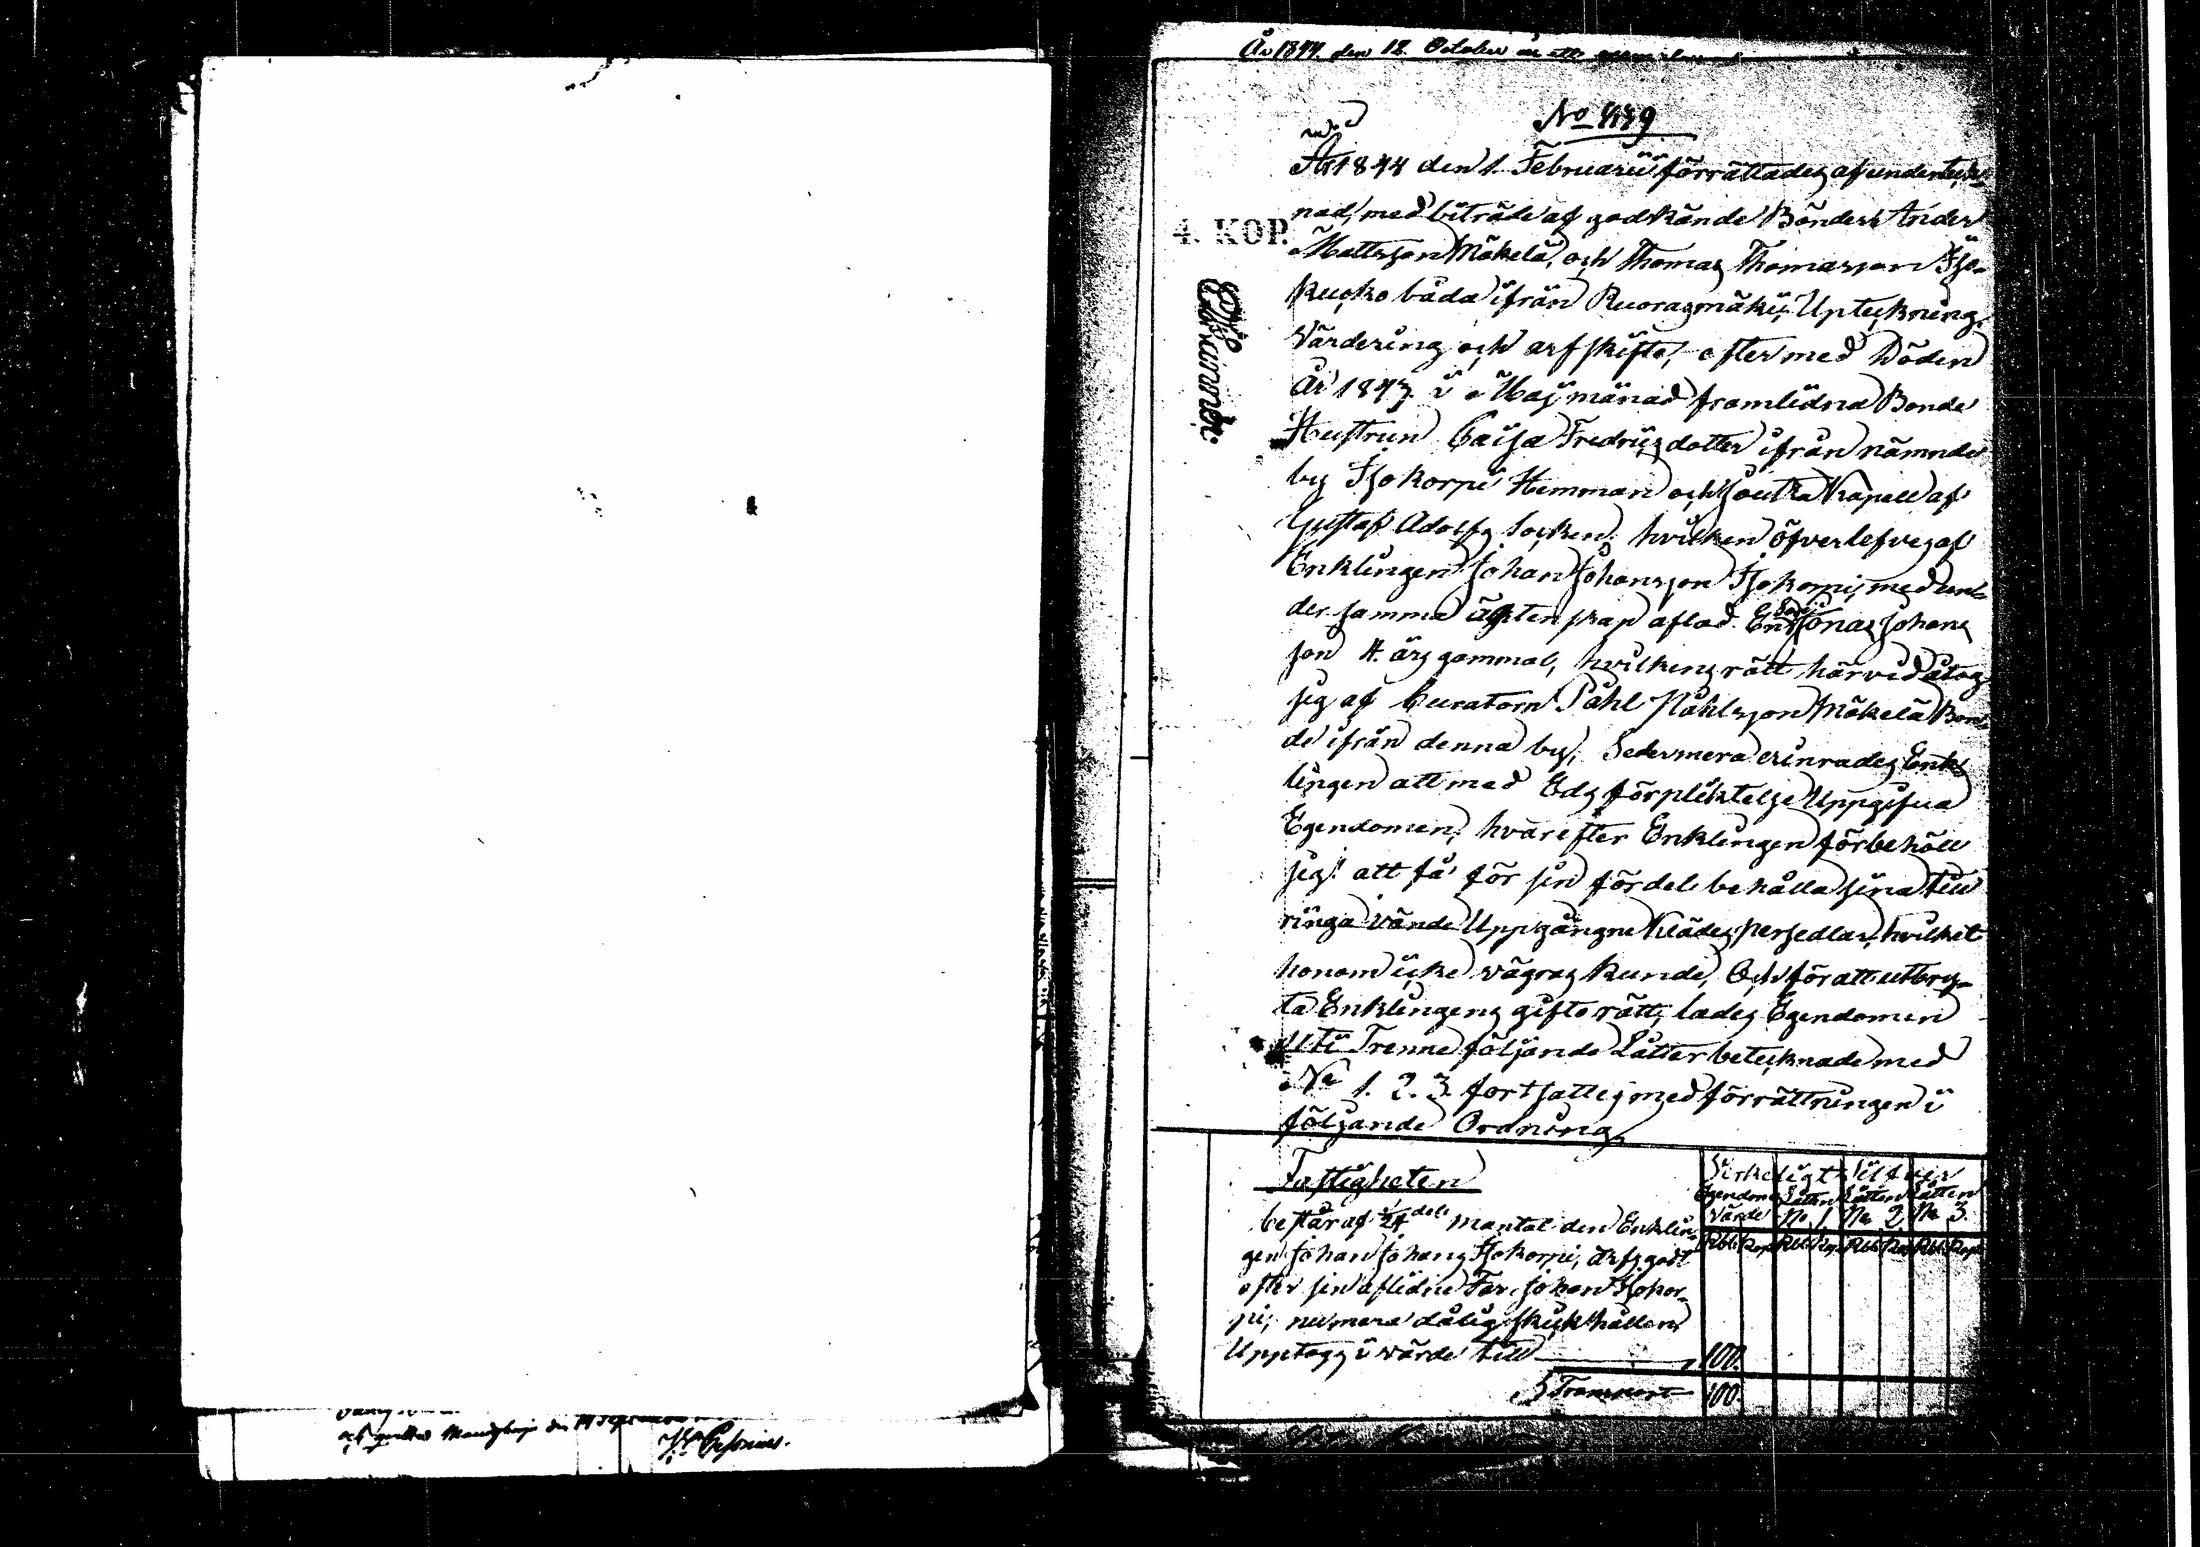 År 1844. den 12. October
No 439
År 1844 den 1. Februarii förrättades af underteck-
nad, med biträde af godkände Bönders Anders
4. KOP.
Mattsson Mäkelä, och Thomas Thomasson Iso-
kuoko båda ifrån Ruorasmäki, Upteckning,
Värdering och arfskifte, efter med Döden
år 1843 i Maij månad framlidna Bonde
Hustrun Caisa Fredricsdotter ifrån nämnde
by Isokorpi Hemman och Joutsa Kapell af
Gustaf Adolfs Socken. hvilken öfverlefves af
Enklingen Johan Johansson Isokorpi, med un-
der samma äktenskap aflad En Son Jonas Johans
son 4. års gammal, hvilkens rätt härvid åtog
sig af Curatorn Påhl Påhlsson Mäkelä Bon-
de ifrån denna by, Sedermera erinrades Enk-
lingen att med Eds förpliktelse Uppgifva
Egendomen, hvarefter Enklingen förbehöll
sig att få för sin fördel behålla sina till
ringa värde Uppgångne Klädes persedlar, hvilket
honom icke vägras kunde, Och för att utbry-
ta Enklingens giftorätt, lades Egendomen
Uti Trenne följande Lotter betecknade med
No 1. 2. 3. fortsattes med förrättningen i
följande Ordning,
Fastigheten
består af 1/24 dels mantal den Enklin-
gen Johan Johans Isokorpi, Arfs godt
efter sin aflidne Far Johan Isokor-
pi, numera dålig skick hållen
Upptogs i värde till 100.
Transport 100.
Egendoms Lotten Lotten Lotten
Värde No 1 No 2 No 3.
Rbl: Kop Rbl: Kop Rbl: Kop Rbl: Kop